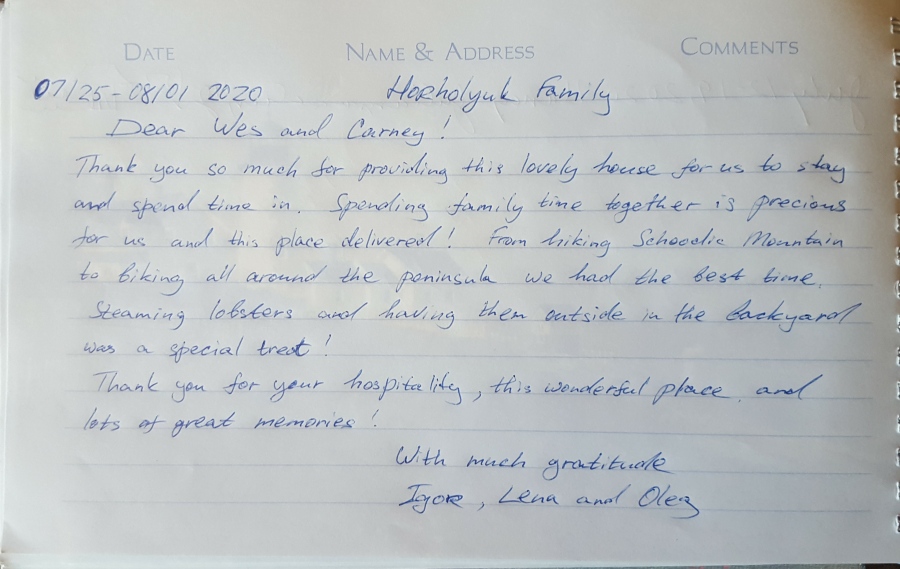 DATE NAME & ADDRESS COMMENTS
07/25-08/01 2020 Horholyuk Family
Dear Wes and Carney!
Thank you so much for providing this lovely house for us to stay
and spend time in. Spending family time together is precious
for us and this place delivered! From hiking Schoodic Mountain
to biking all around the peninsula we had the best time.
Steaming lobsters and having them outside in the backyard
was a special treat!
Thank you for your hospitality, this wonderful place and
lots of great memories!
With much gratitude
Igor, Lena and Oleg